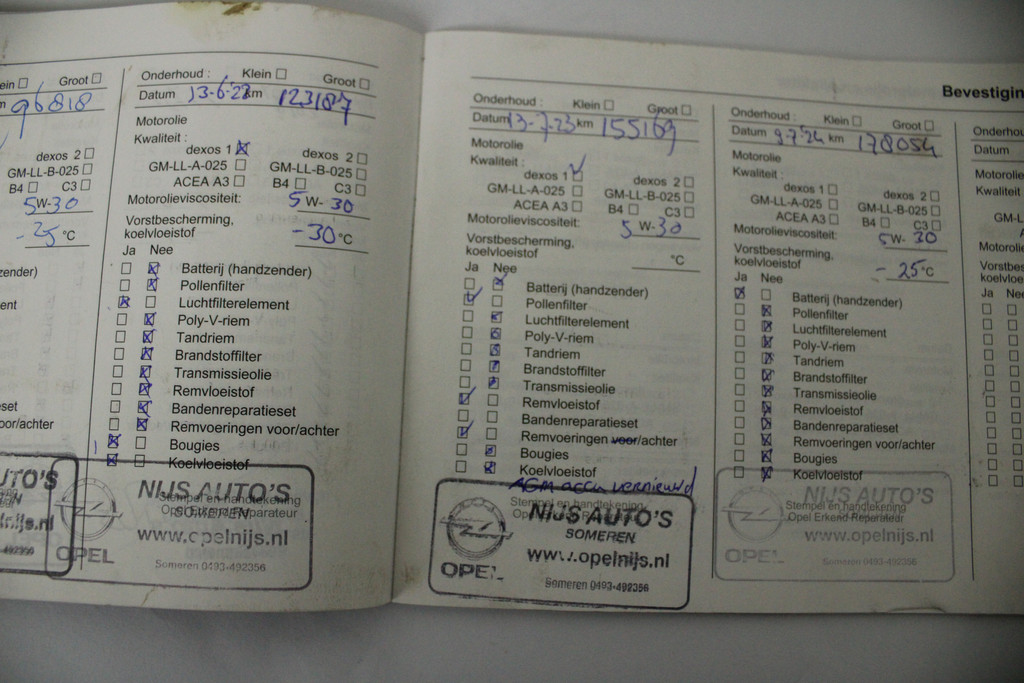 ein ☐ Groot ☐
m 96818
dexos 2 ☐
GM-LL-B-025 ☐
B4 ☐ C3 ☐
5W-30
-25 °C
zender)
ent
set
oor/achter
TO'S
ijs.nl
Onderhoud : Klein ☐ Groot ☐
Datum 13-6-22 km 123187
Motorolie
Kwaliteit :
dexos 1 ☒ dexos 2 ☐
GM-LL-A-025 ☐ GM-LL-B-025 ☐
ACEA A3 ☐ B4 ☐ C3 ☐
Motorolieviscositeit: 5 W- 30
Vorstbescherming,
koelvloeistof -30 °C
Ja Nee
☐ ☒ Batterij (handzender)
☐ ☒ Pollenfilter
☒ ☐ Luchtfilterelement
☐ ☒ Poly-V-riem
☐ ☒ Tandriem
☐ ☒ Brandstoffilter
☐ ☒ Transmissieolie
☐ ☒ Remvloeistof
☐ ☒ Bandenreparatieset
☐ ☒ Remvoeringen voor/achter
☒ ☐ Bougies
☒ ☐ Koelvloeistof
NIJS AUTO'S
Stempel en handtekening
SOMEREN
Opel Erkend Reparateur
www.opelnijs.nl
OPEL
Someren 0493-492356
Bevestigin
Onderhoud : Klein ☐ Groot ☐
Datum 13-7-23 km 155169
Motorolie
Kwaliteit :
dexos 1 ☑ dexos 2 ☐
GM-LL-A-025 ☐ GM-LL-B-025 ☐
ACEA A3 ☐ B4 ☐ C3 ☐
Motorolieviscositeit: 5 W-30
Vorstbescherming,
koelvloeistof °C
Ja Nee
☐ ☑ Batterij (handzender)
☑ ☐ Pollenfilter
☐ ☒ Luchtfilterelement
☐ ☒ Poly-V-riem
☐ ☒ Tandriem
☐ ☒ Brandstoffilter
☐ ☒ Transmissieolie
☑ ☐ Remvloeistof
☐ ☐ Bandenreparatieset
☑ ☐ Remvoeringen voor/achter
☐ ☒ Bougies
☐ ☒ Koelvloeistof
AGM accu vernieuwd
Stempel en handtekening
NIJS AUTO'S
SOMEREN
www.opelnijs.nl
OPEL
Someren 0493-492356
Onderhoud : Klein ☐ Groot ☐
Datum 9-7-'24 km 178054
Motorolie
Kwaliteit :
dexos 1 ☐ dexos 2 ☐
GM-LL-A-025 ☐ GM-LL-B-025 ☐
ACEA A3 ☐ B4 ☐ C3 ☐
Motorolieviscositeit: 5W- 30
Vorstbescherming,
koelvloeistof - 25 °C
Ja Nee
☒ ☐ Batterij (handzender)
☐ ☒ Pollenfilter
☐ ☒ Luchtfilterelement
☐ ☒ Poly-V-riem
☐ ☒ Tandriem
☐ ☒ Brandstoffilter
☐ ☒ Transmissieolie
☐ ☒ Remvloeistof
☐ ☒ Bandenreparatieset
☐ ☒ Remvoeringen voor/achter
☐ ☒ Bougies
☐ ☒ Koelvloeistof
NIJS AUTO'S
Stempel en handtekening
SOMEREN
Opel Erkend Reparateur
www.opelnijs.nl
OPEL
Someren 0493-492356
Onderhou
Datum
Motorolie
Kwaliteit
GM-L
Motorolie
Vorstbes
koelvloei
Ja Nee